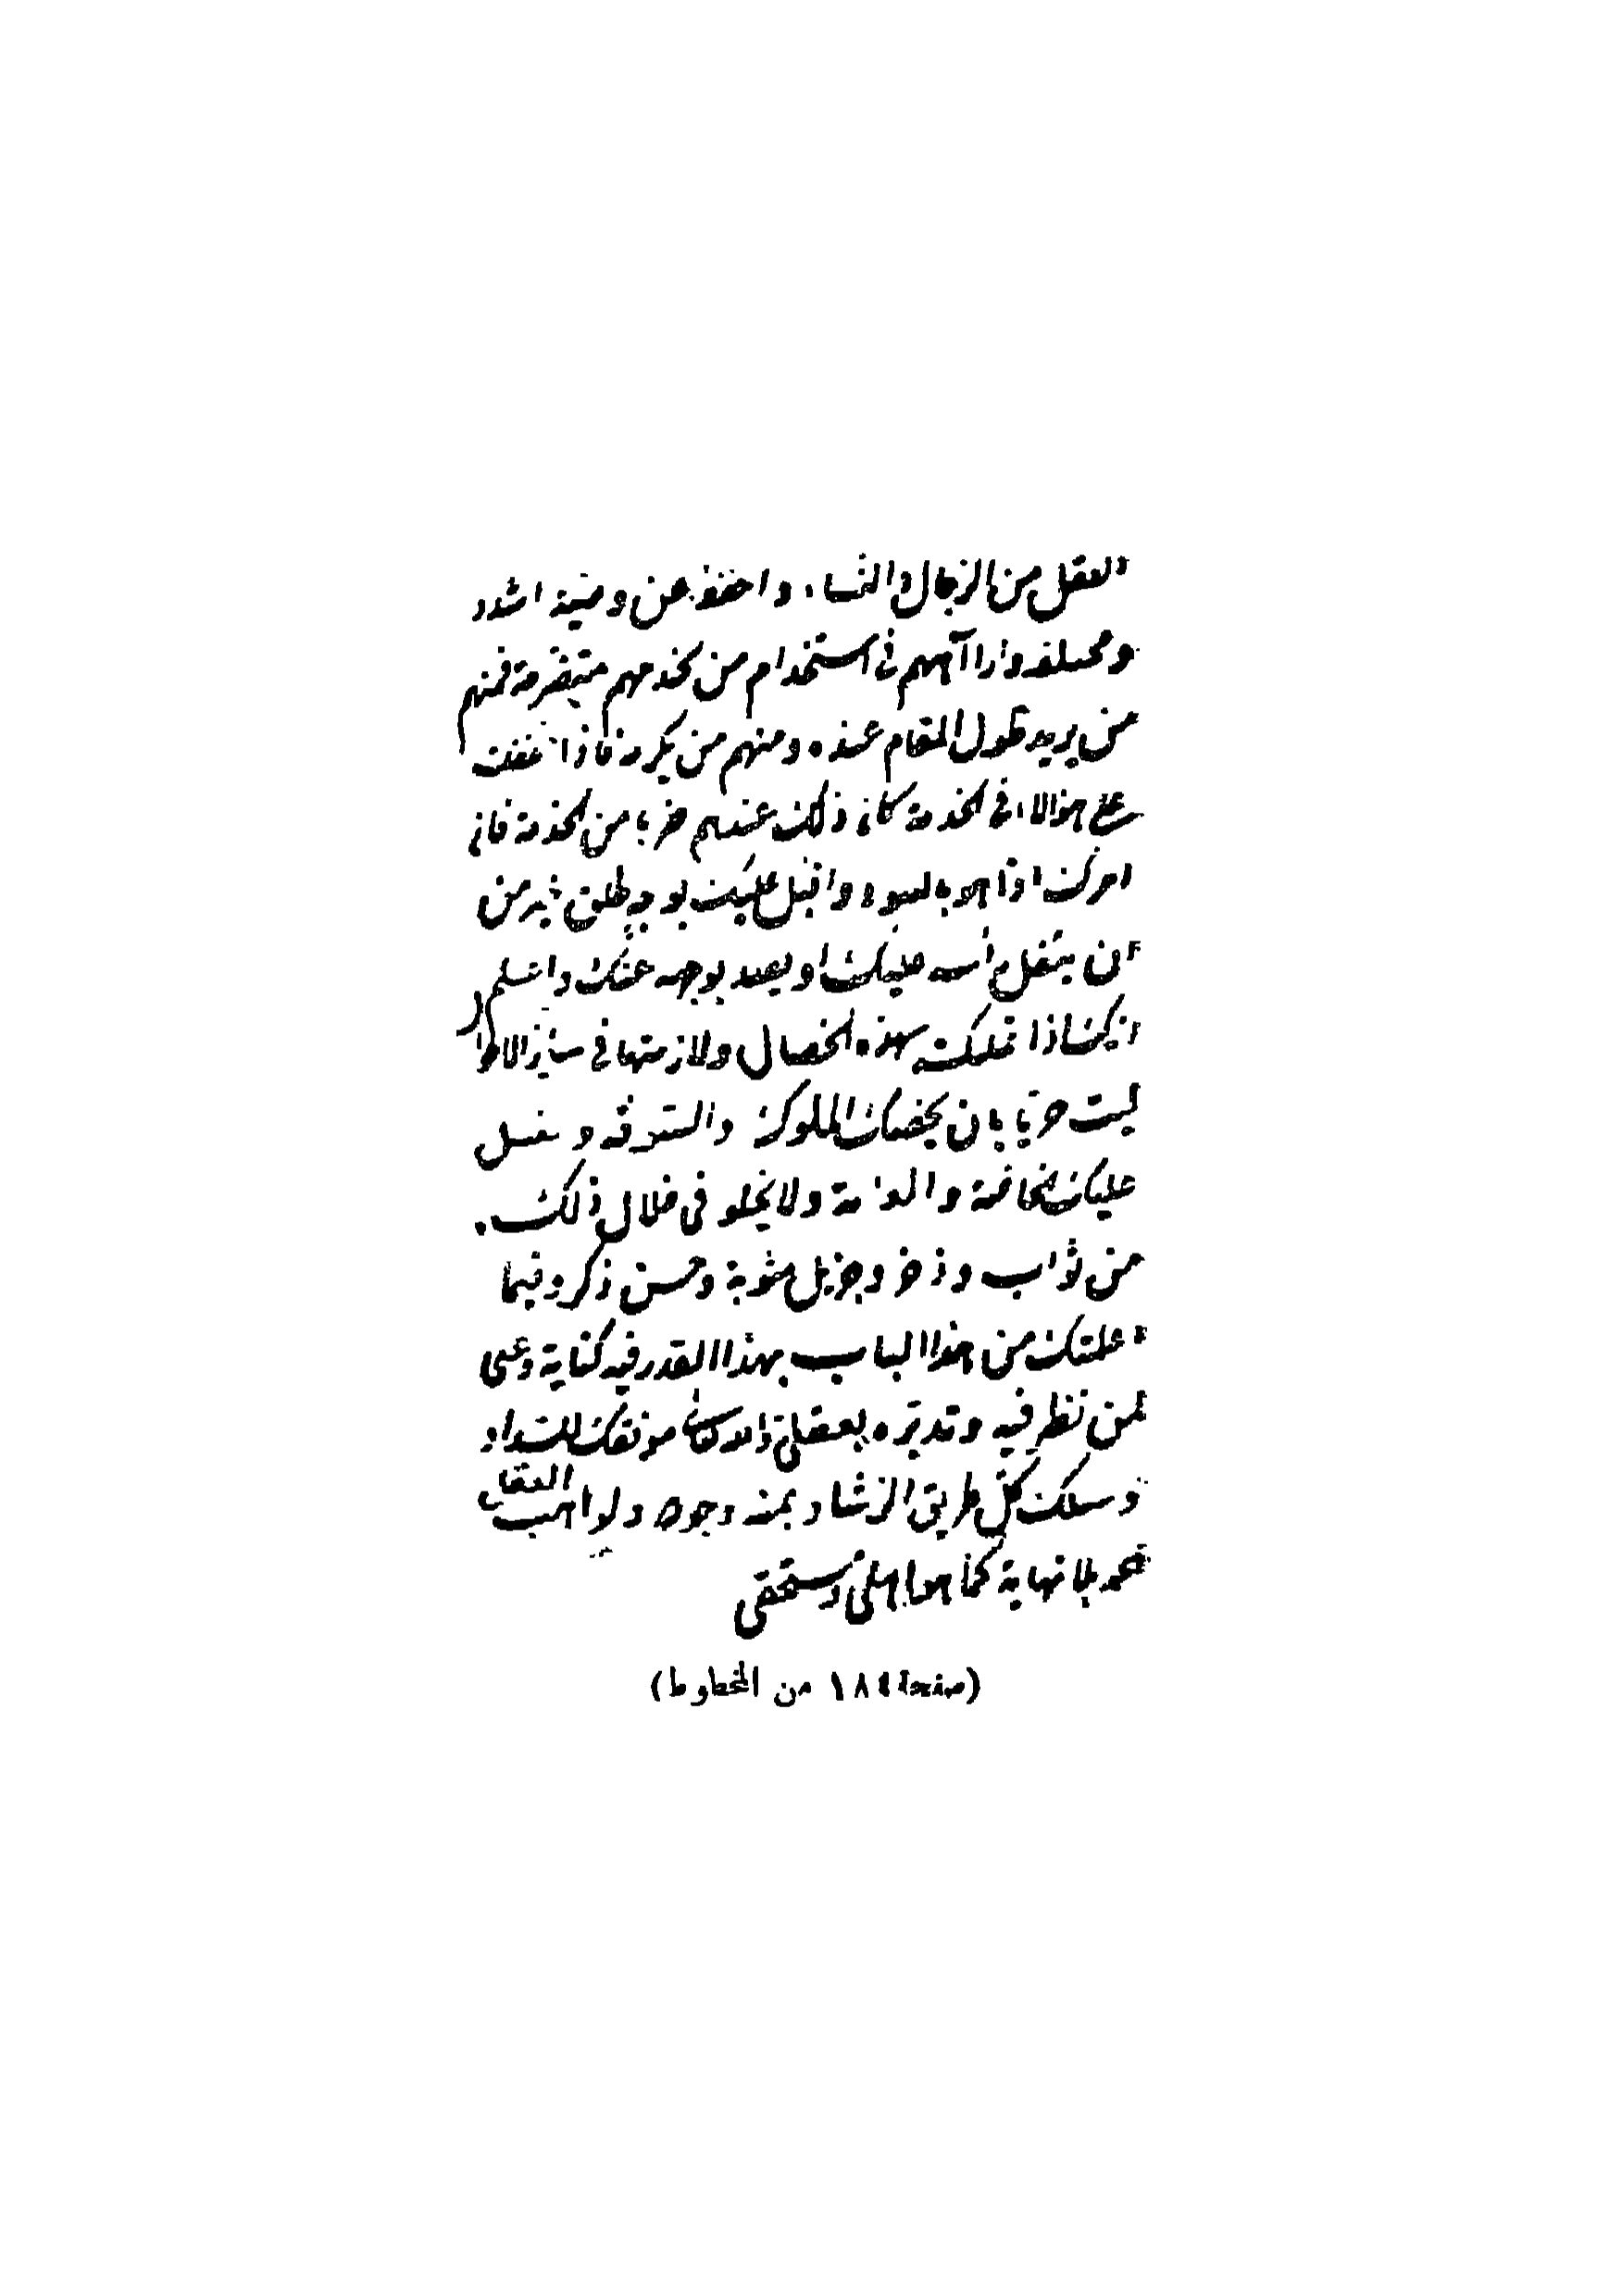 العقل من الرجال والنساء واحفظ عن وصية اشدد
ومختلفة وارا آهم في استخدام من يخدمهم متفرقة فمنهم
من يريد طول المقام عنده ومنهم من يكره فاذا خففت
على هؤلاء في الخدمة كان ذلك عندهم ضربا من الخدمة فان
امرك اذا واقبل عليك بوجه طلق خير من
أن يثقل أمره عليك او يصد بوجهه عنك واعلم
انك اذا تمسكت بهذه الخصال ولازمتها في سائر الاحوا
ل
ليت حريا بان يخصك الملوك والسوقة و
عليك الخاصة والعامة ولا يخلو في خلال ذلك.
من ثواب وذخر وجزيل مثوبة وحسن ذكر وفيما
اعلمتك من هذا الباب بهذا القدر فيه كفاية وغنى
لمن نظر فيه وتدبره بعقله والله كان موفقك للسداد
وسلك كل طريق الرشاد بمنه وجوده ولواهب العقل
حمد بلا نهاية كما هو اهله ومستحقه
(صفحة ١٨٤ من المخطوط)